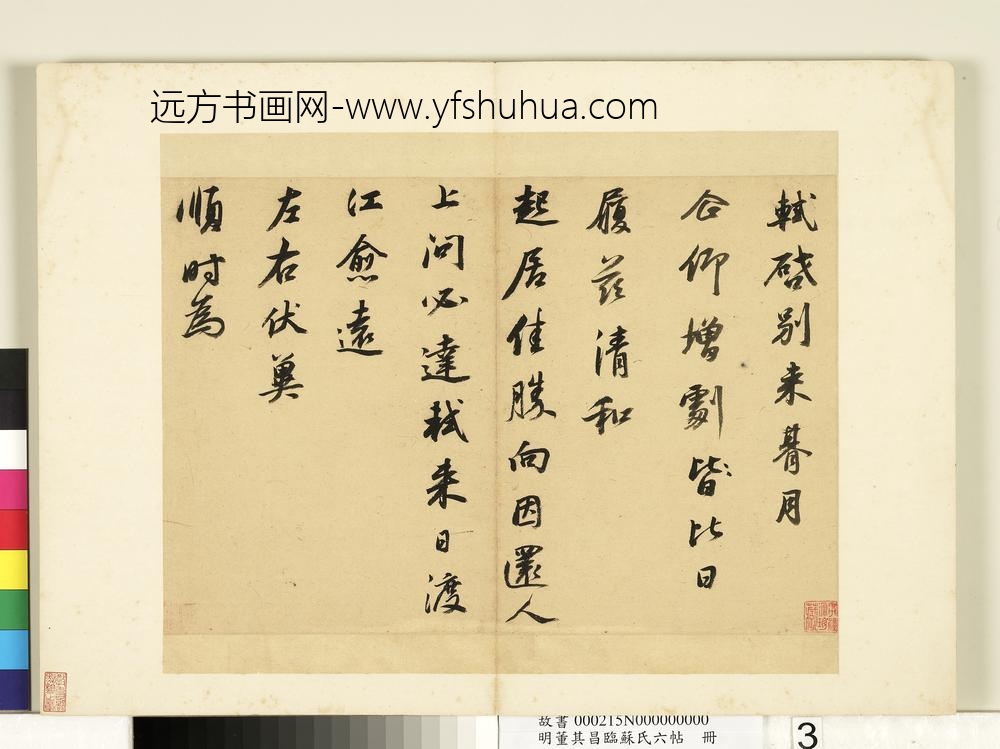 远方书画网-www.yfshuhua.com
軾啓別来朞月
仰增劇比日
履茲清和
起居佳勝向因還人
上问必達軾来日渡
江愈遠
左右伏冀
順时為
故書 000215N000000000
明董其昌臨蘇氏六帖 冊
3